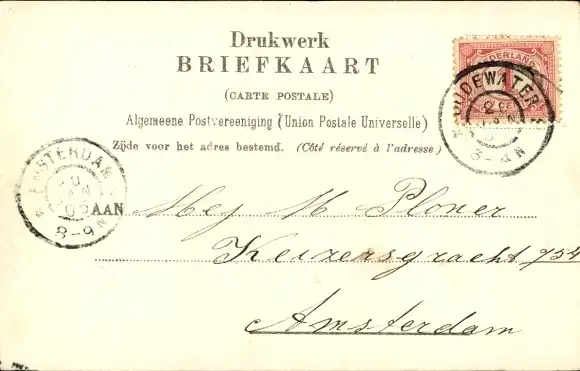 Drukwerk
BRIEFKAART
(CARTE POSTALE)
Algemeene Postvereeniging (Union Postale Universelle)
Zijde voor het adres bestemd. (Côté réservé à l'adresse.)
NEDERLAND
OUDEWATER
3-4N
AMSTERDAM
8-9N
AAN Mej M Plover
Keizersgracht 754
Amsterdam